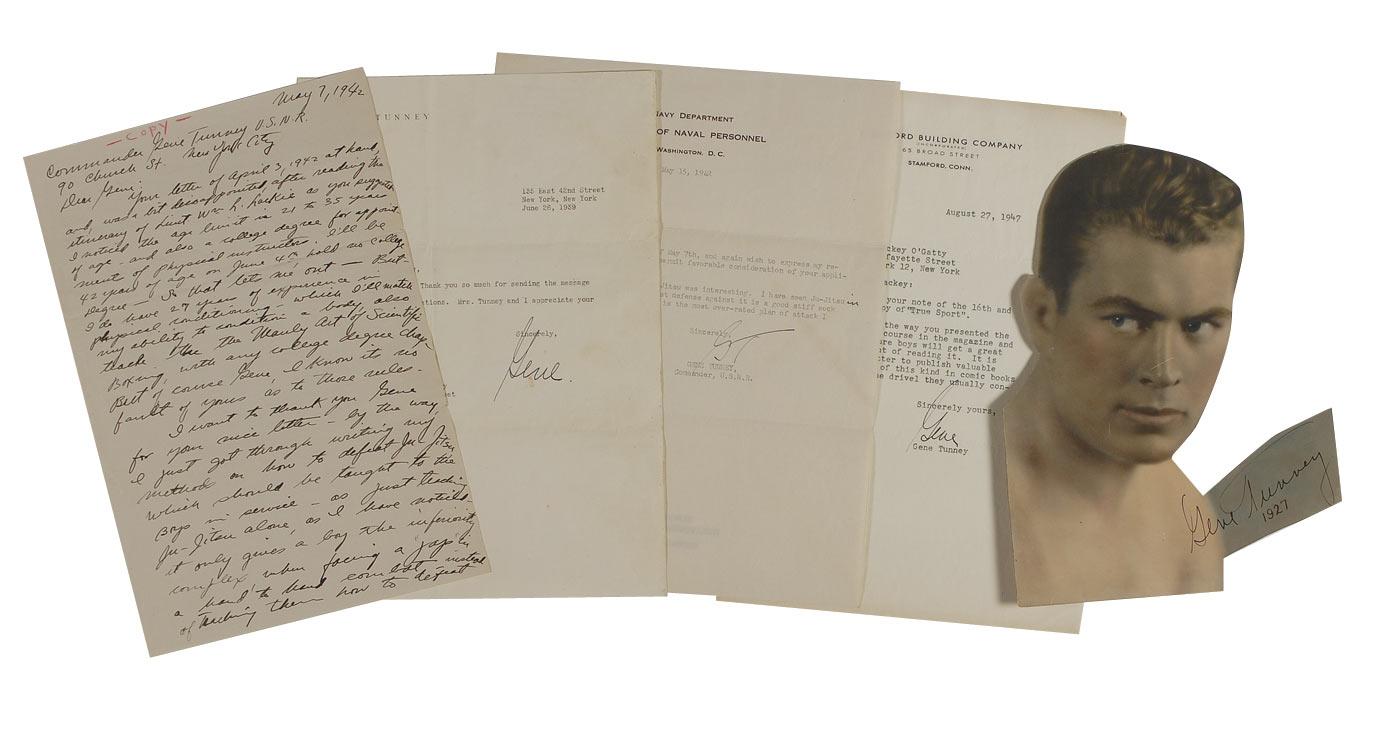 May 7, 1942
— COPY —
Commander Gene Tunney U.S.N.R.
90 Church St. New York City
Dear Gene:
Your letter of April 3, 1942 at hand,
and, was a bit disappointed, after reading the
itinerary of Lieut Wm. R. Lackie as you suggested
I noticed the age limit is 21 to 35 years
of age - and also a college degree for appoint-
ments of physical instructors. I'll be
42 years of age on June 4th, hold no college
degree — So that lets me out — But-
I do have 27 years of experience in
physical conditioning - which I'll match
my ability to condition a body, also
teach the the Manly Art of Scientific
Boxing, with any college degree chap
But of course Gene, I know it's no
fault of yours as to those rules -
I want to thank you Gene
for your nice letter - by the way,
I just got through writing my
methods on how to defeat Ju-Jitsu
which should be taught to the
Boys in service - as just teaching
Ju-Jitsu alone, as I have noticed-
it only gives a boy the inferiority
complex when facing a Jap in
a hand to hand combat - instead
of teaching them how to defeat
TUNNEY
135 East 42nd Street
New York, New York
June 26, 1939
Thank you so much for sending the message
tions. Mrs. Tunney and I appreciate your
Sincerely,
Gene.
NAVY DEPARTMENT
OF NAVAL PERSONNEL
WASHINGTON, D. C.
May 15, 1942
May 7th, and again wish to express my re-
permit favorable consideration of your appli-
Jitsu was interesting. I have seen Ju-Jitsu in
st defense against it is a good stiff sock
is the most over-rated plan of attack I
Sincerely,
GENE TUNNEY,
Commander, U.S.N.R.
ORD BUILDING COMPANY
INCORPORATED
65 BROAD STREET
STAMFORD, CONN.
August 27, 1947
ckey O'Gatty
fayette Street
rk 12, New York
ackey:
your note of the 16th and
py of "True Sport".
the way you presented the
course in the magazine and
ure boys will get a great
nt of reading it. It is
tter to publish valuable
of this kind in comic books
e drivel they usually con-
Sincerely yours,
Gene
Gene Tunney
Gene Tunney
1927